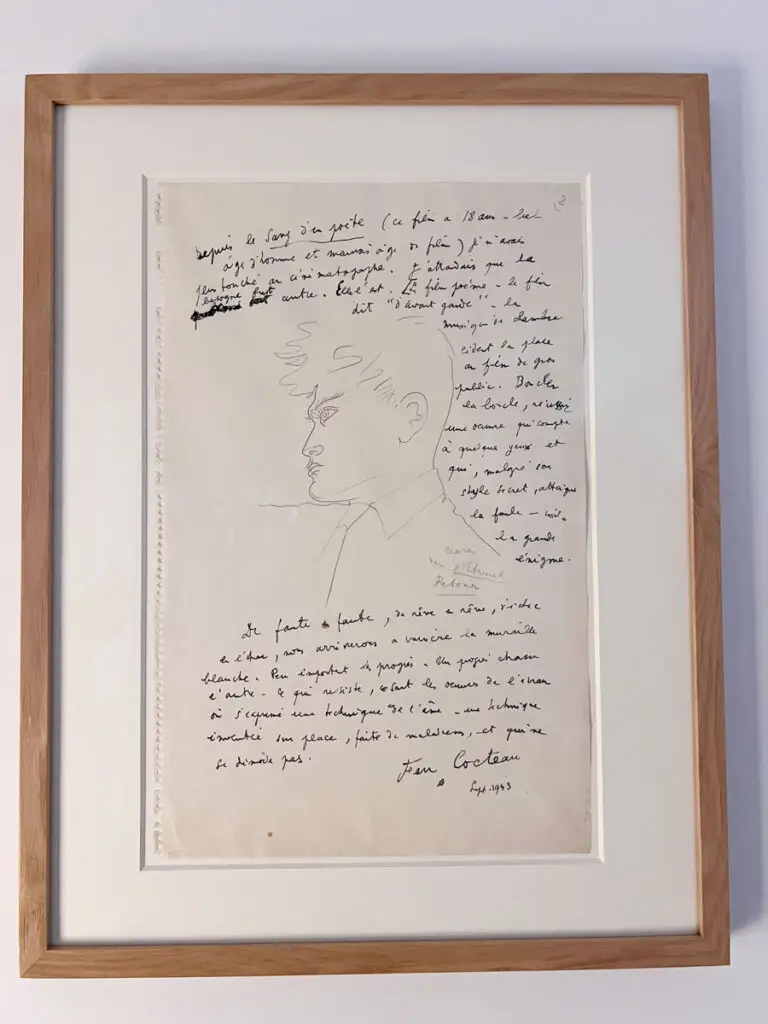 2
Depuis le Sang d'un poète (ce film a 18 ans – bel
âge d'homme et mauvais âge de film) je n'avais
plus touché au cinématographe. J'attendais que la
besogne fut autre. Elle l'est. Le film poème – le film
dit "d'avant garde" – la
musique de chambre
cèdent la place
au film de gros
public. Boucler
la boucle, réussir
une œuvre qui compte
à quelques yeux et
qui, malgré son
style secret, atteigne
la foule – voilà
la grande
énigme.
l'Eternel
Retour
De faute en faute, de rêve en rêve, d'échec
en échec, nous arriverons à vaincre la muraille
blanche. Peu importent les progrès. Un progrès chasse
l'autre. Ce qui résiste, ce sont les œuvres de l'écran
où s'exprime une technique de l'âme – une technique
inventée sur place, faite de maladresses, et qui ne
se démode pas.
Jean Cocteau
Sept. 1943